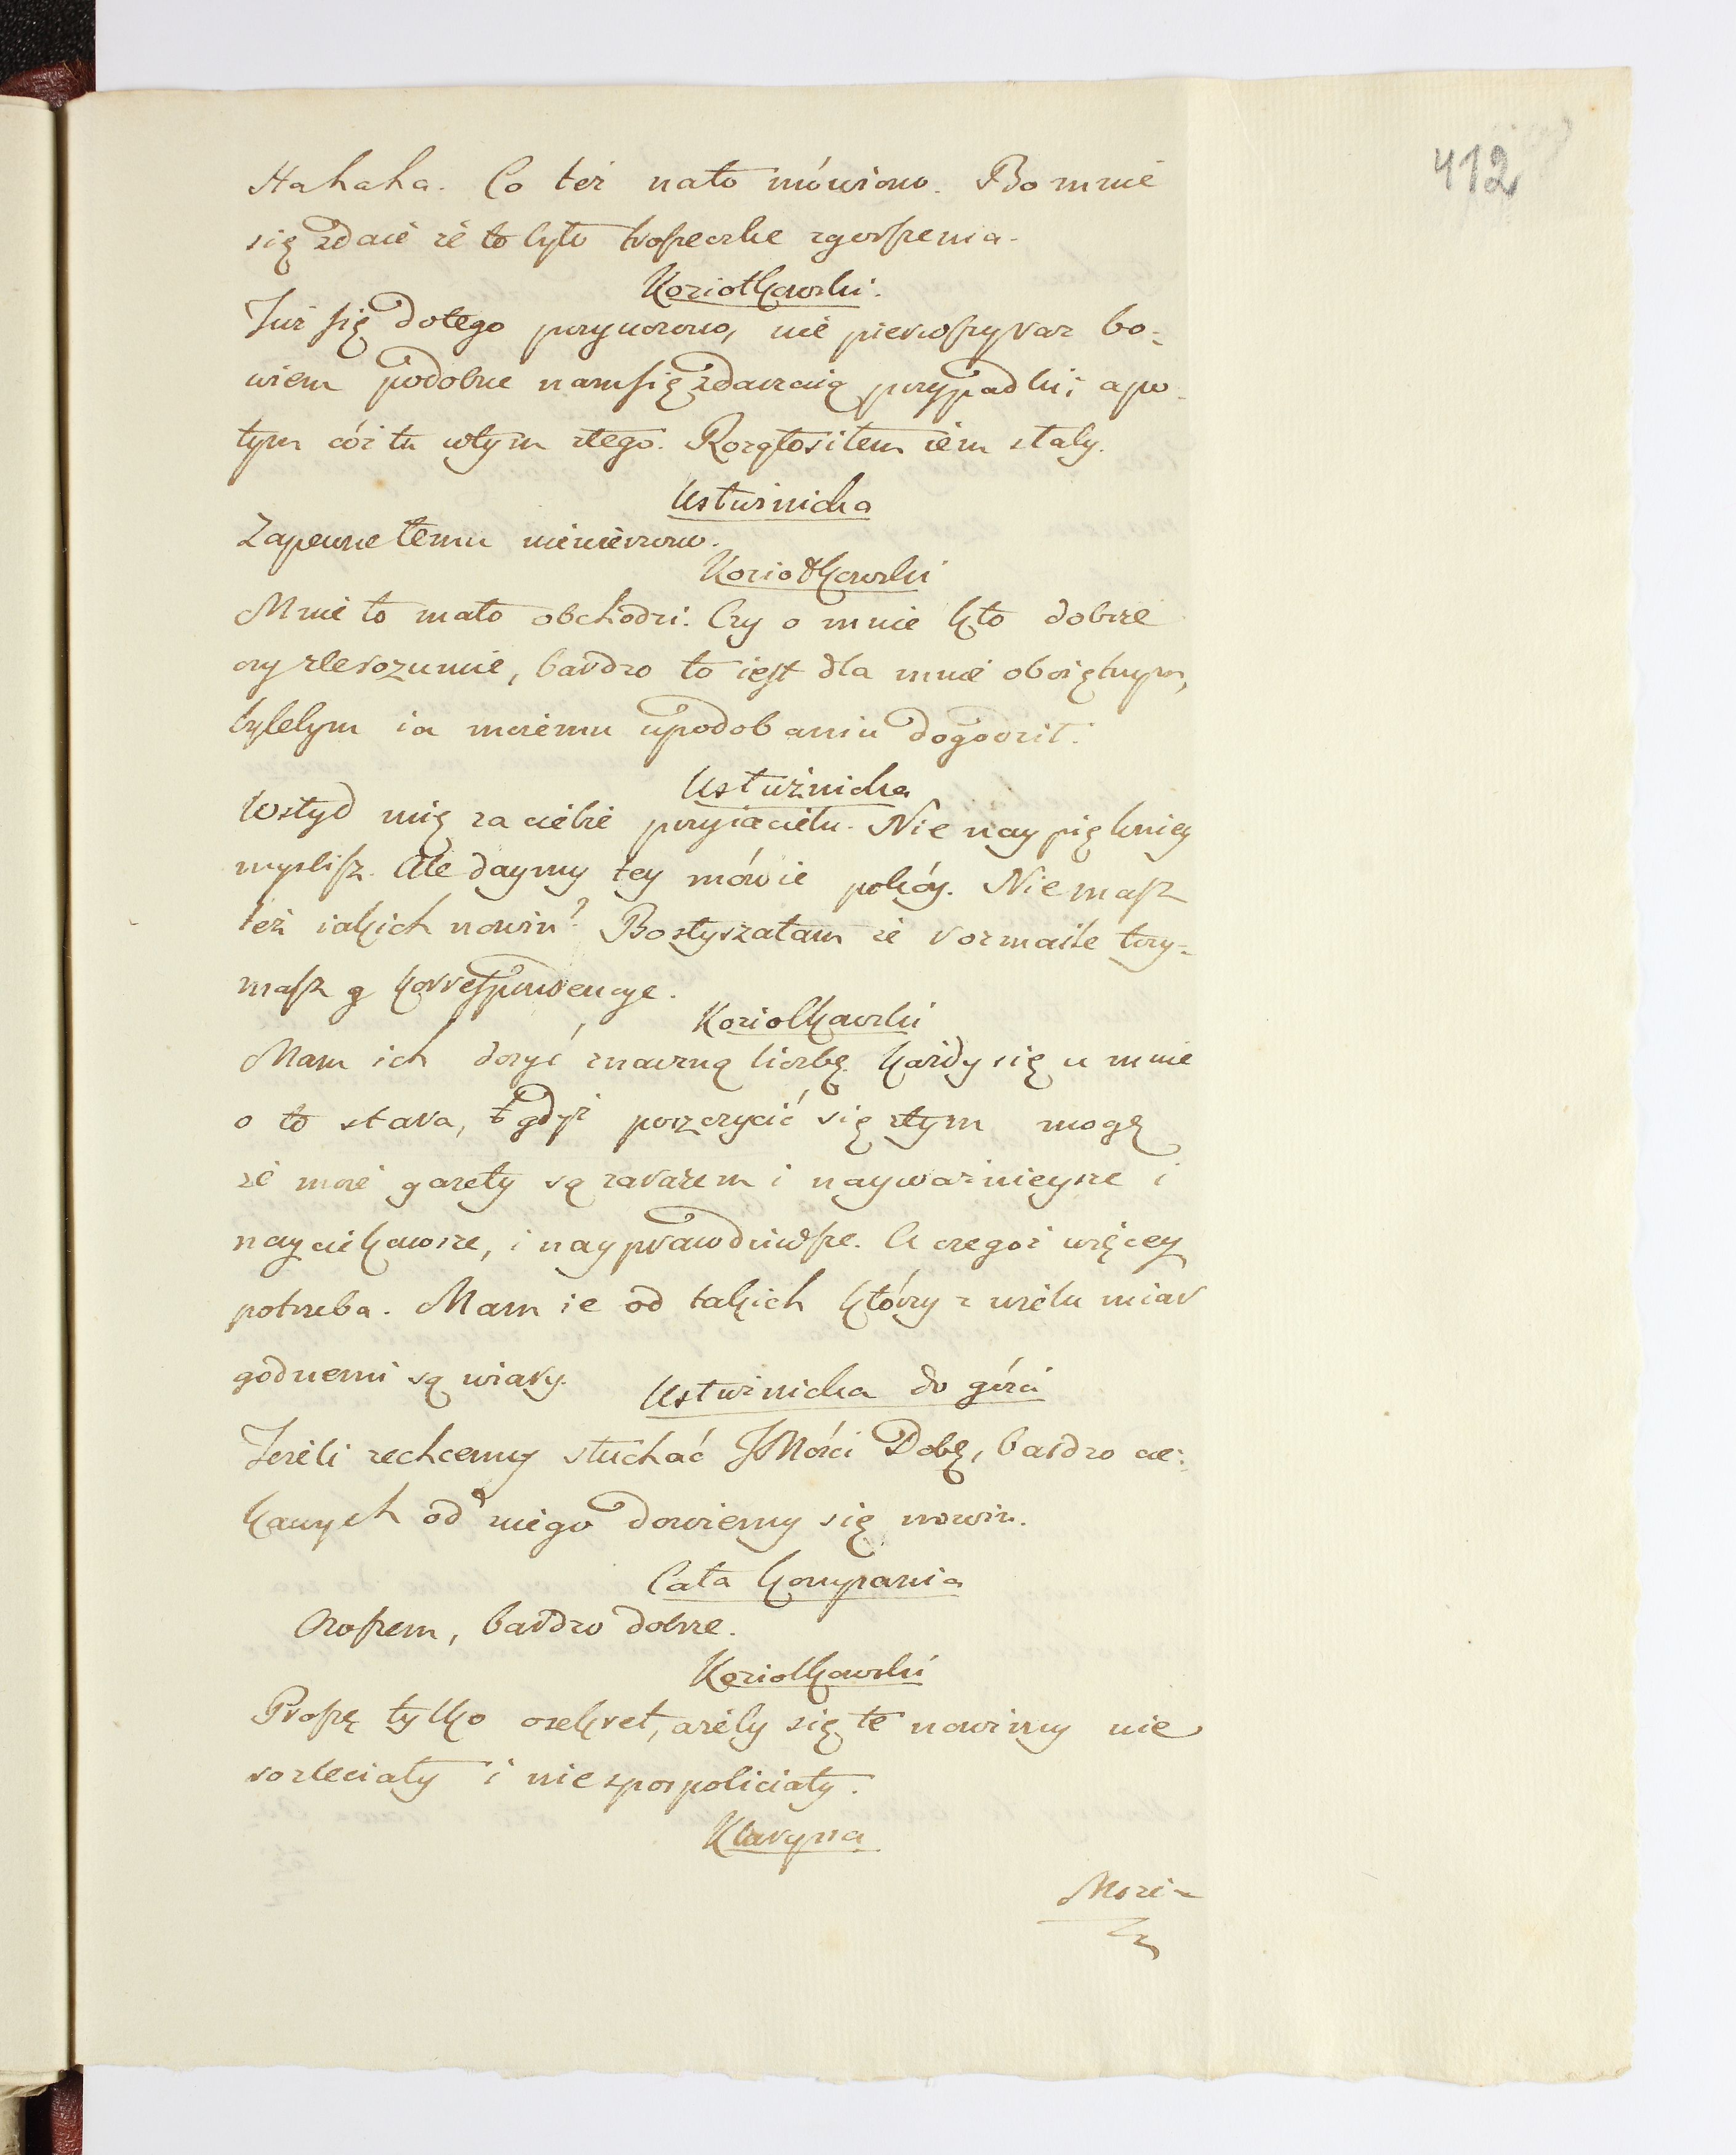 412
Hahaha. Co też nato mówiono. Bo mnie
się zdaie że to było troszeczke zgorszenia.
Koziołkowski.
Już się dotego przyuczono, nie pierwszy raz bo-
wiem podobne nam się zdarzaią przypadki; a po
tym cóż tu wtym złego. Rozgłosiłem żem słaby.
Usłużnicka
Zapewne temu niewierzono.
Koziołkowski
Mnie to mało obchodzi. Czy o mnie kto dobrze
czy zle rozumie, bardzo to iest dla mnie oboiętnym,
bylebym ia moiemu upodobaniu dogodził.
Usłużnicka
Wstyd mię za ciebie przyiacielu. Nie naypiękniey
myslisz. Ale daymy tey mówie pokóy. Nie masz
też iakich nowin? Bo słyszałam że rozmaite trzy-
masz korrespondencye.
Koziołkowski
Mam ich dosyć znaczną liczbę. Każdy się u mnie
o to stara, gdyż poszczycić się ztym mogę
że moie gazety są zarazem i nayważnieysze i
nayciekawsze, i nayprawdziwsze. A czegoż więcey
potrzeba. Mam ie od takich którzy z wielu miar
godnemi są wiary.
Usłużnicka do gości
Jeżeli zechcemy słuchać JMości Dobę, bardzo cie-
kawych od niego dowiemy się nowin.
Cała kompania
Owszem, bardzo dobrze.
Koziołkowski
Proszę tylko osekret, ażeby się te nowiny nie
rozleciały i nie spospoliciały.
Klaryssa
Może-